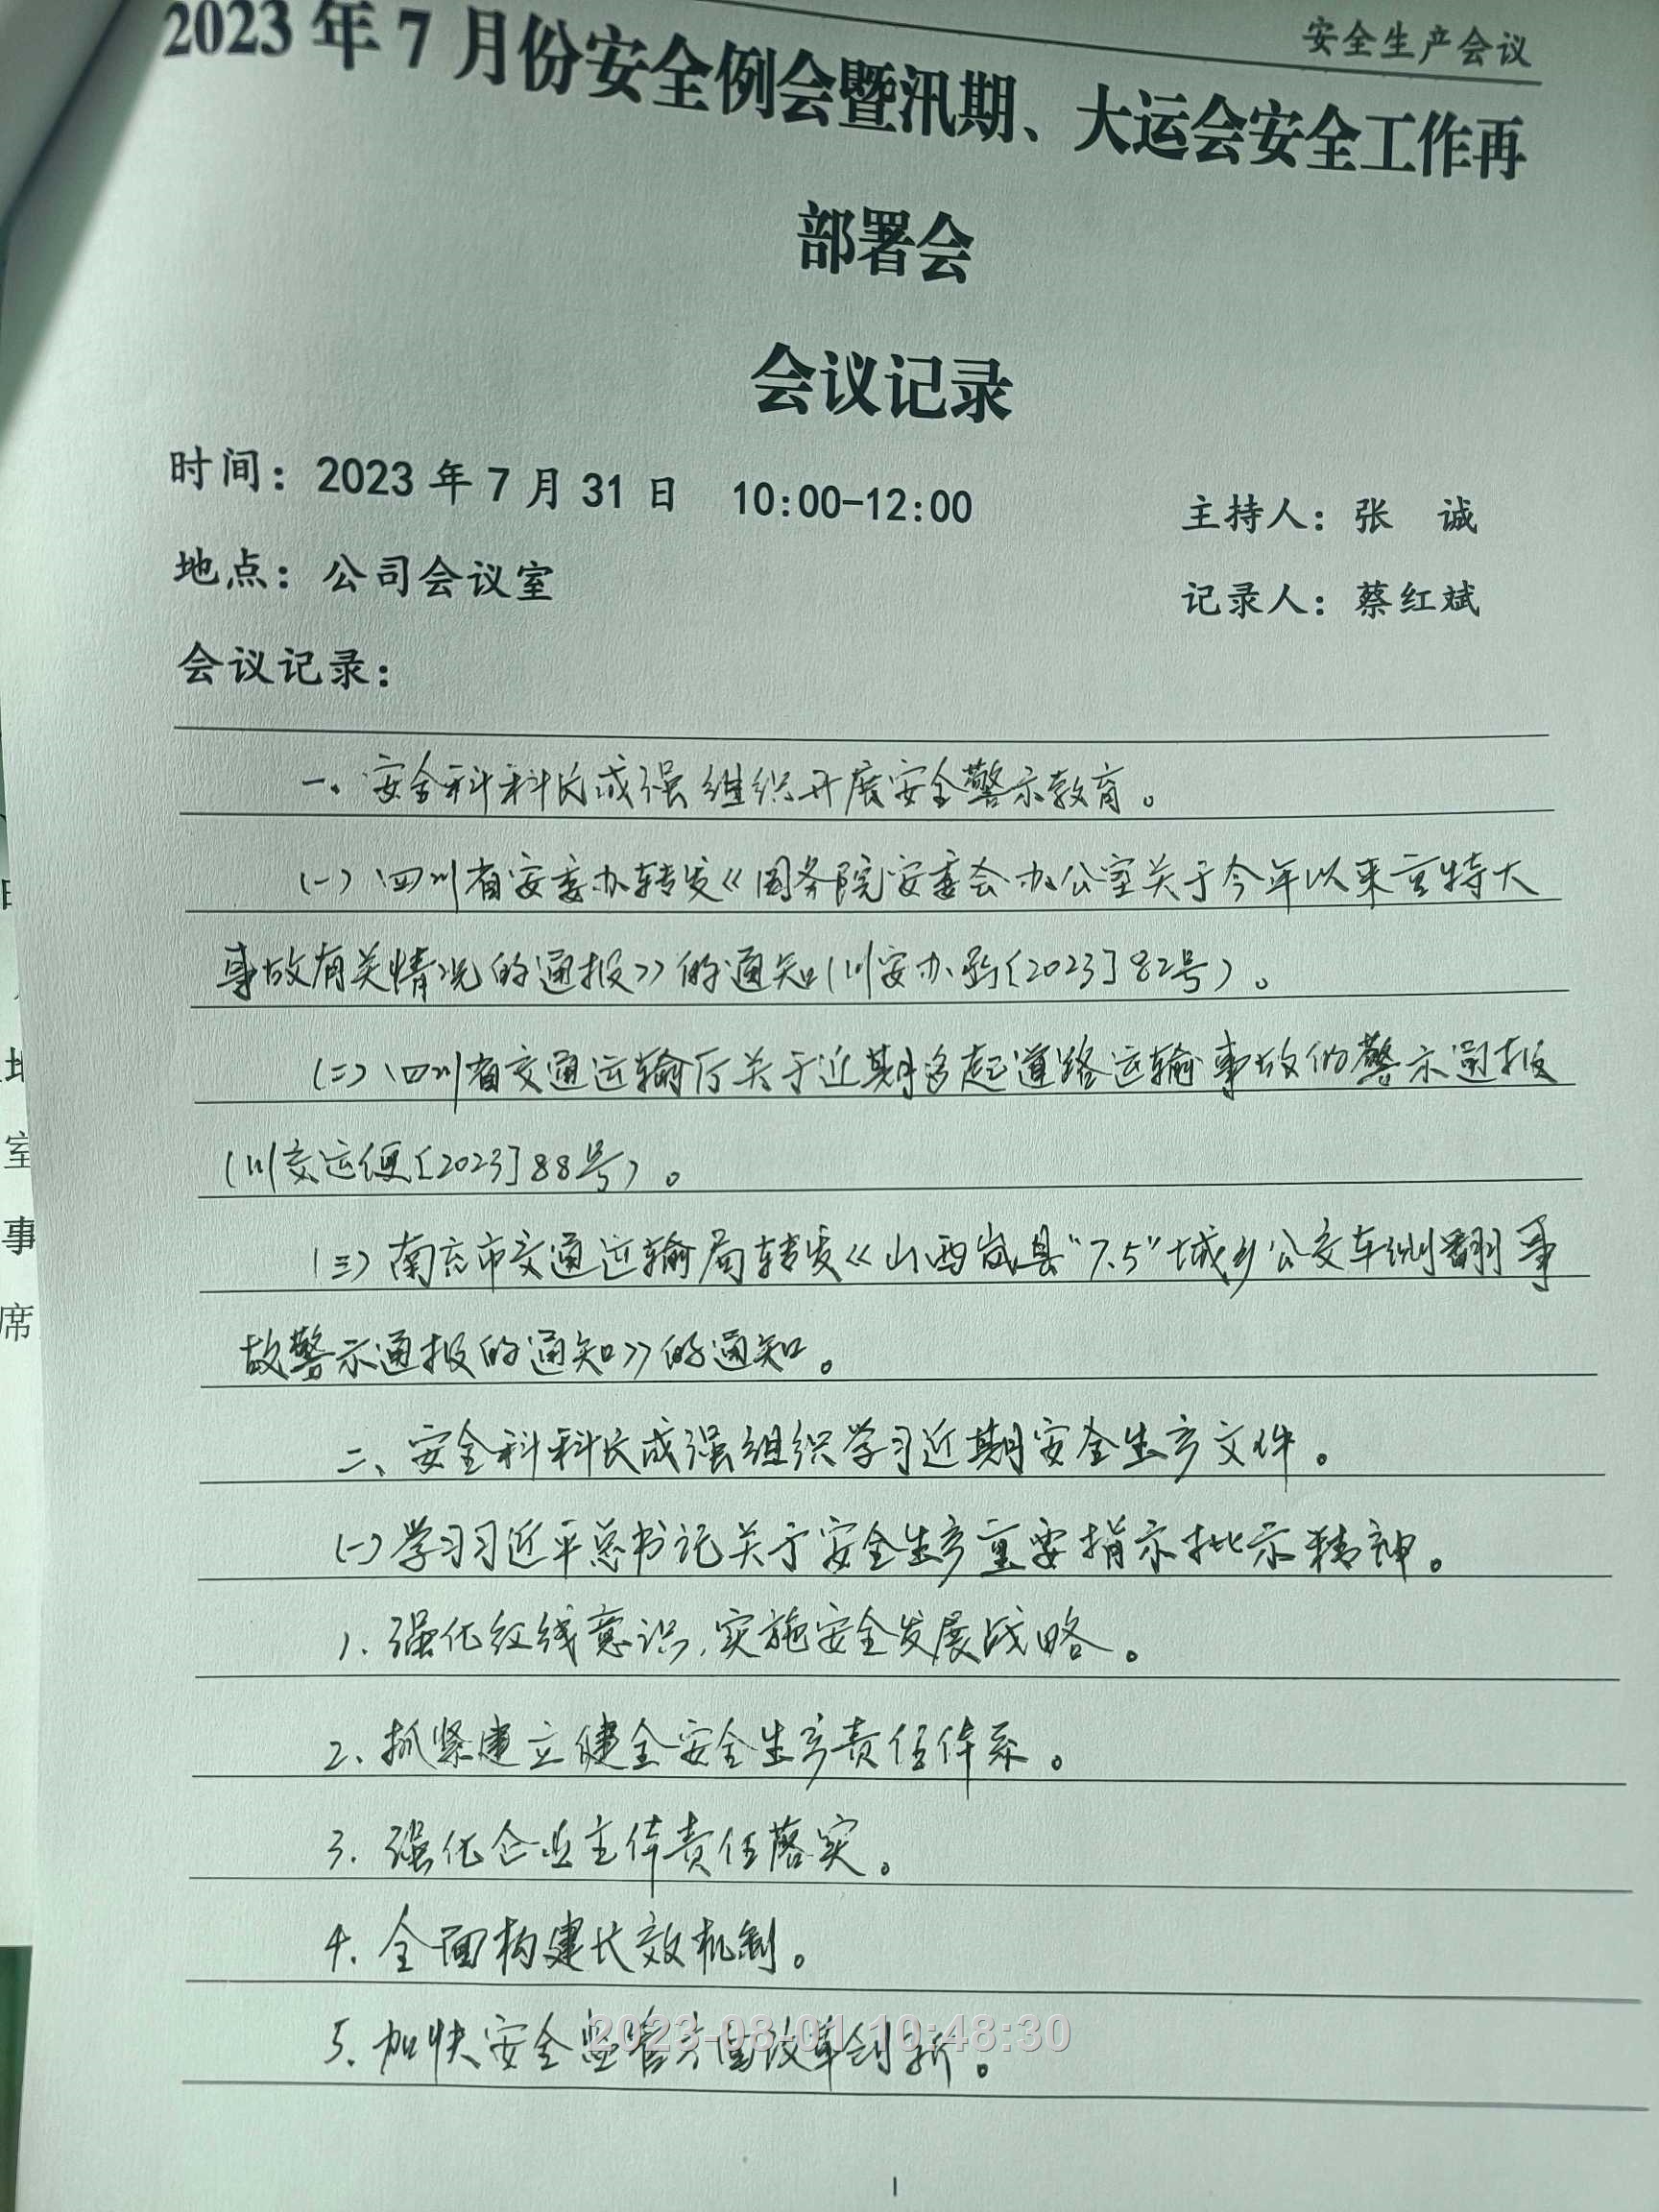 安全生产会议
2023年7月份安全例会暨汛期、大运会安全工作再
部署会
会议记录
时间：2023年7月31日 10:00-12:00
主持人：张 诚
地点：公司会议室
记录人：蔡红斌
会议记录：
一、安全科科长成强组织开展安全警示教育。
(一)四川省安委办转发《国务院安委会办公室关于今年以来重特大
事故有关情况的通报》的通知(川安办函[2023]82号)。
(二)四川省交通运输厅关于近期多起道路运输事故的警示通报
(川交运便[2023]88号)。
(三)南充市交通运输局转发《山西岚县"7.5"城乡公交车侧翻事
故警示通报的通知》的通知。
二、安全科科长成强组织学习近期安全生产文件。
(一)学习习近平总书记关于安全生产重要指示批示精神。
1.强化红线意识，实施安全发展战略。
2.抓紧建立健全安全生产责任体系。
3.强化企业主体责任落实。
4.全面构建长效机制。
5.加快安全监管方面改革创新。
2023-08-01 10:48:30
1
室
事
席